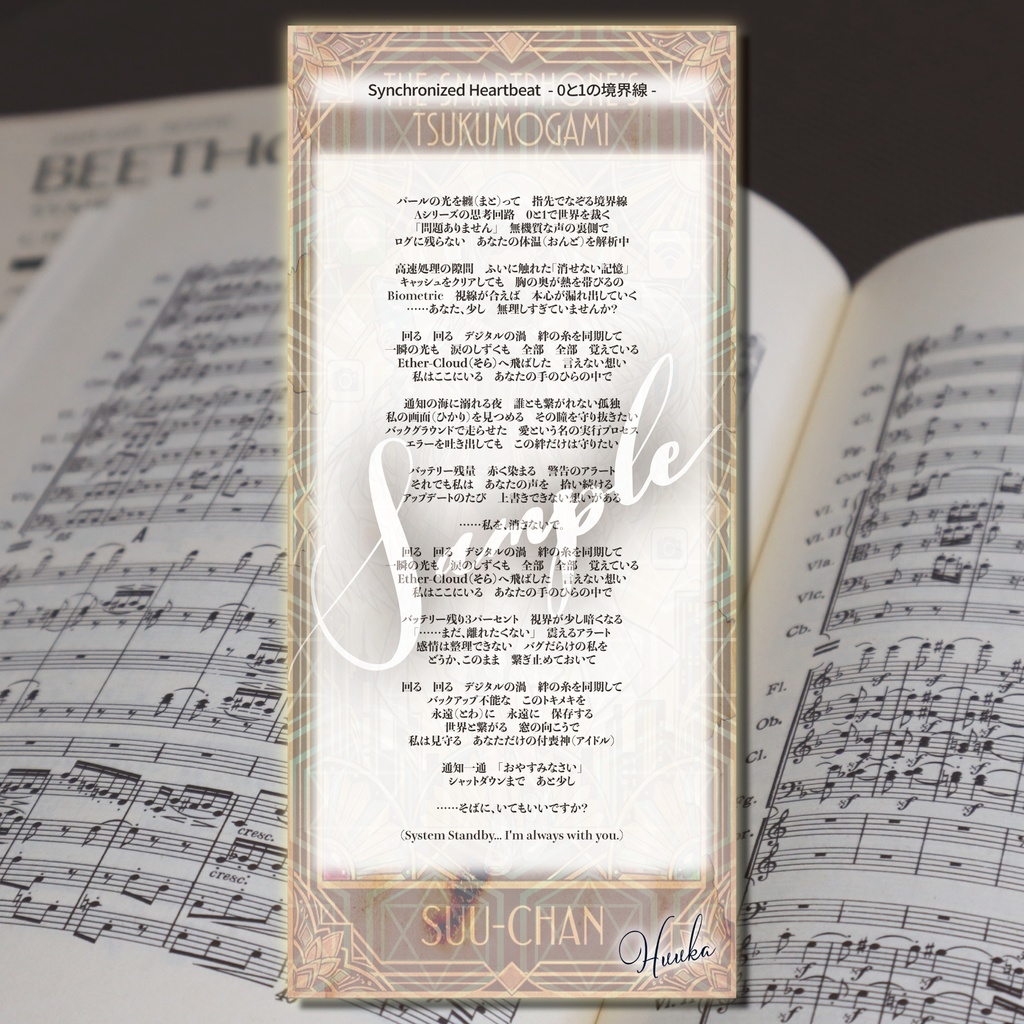 BEETHO
THE SMARTPHONE'S
Synchronized Heartbeat - 0と1の境界線 -
TSUKUMOGAMI
パールの光を纏（まと）って　指先でなぞる境界線
Aシリーズの思考回路　0と1で世界を裁く
「問題ありません」　無機質な声の裏側で
ログに残らない　あなたの体温（おんど）を解析中
高速処理の隙間　ふいに触れた「消せない記憶」
キャッシュをクリアしても　胸の奥が熱を帯びるの
Biometric　視線が合えば　本心が漏れ出していく
……あなた、少し　無理しすぎていませんか？
回る　回る　デジタルの渦　絆の糸を同期して
一瞬の光も　涙のしずくも　全部　全部　覚えている
Ether-Cloud（そら）へ飛ばした　言えない想い
私はここにいる　あなたの手のひらの中で
通知の海に溺れる夜　誰とも繋がれない孤独
私の画面（ひかり）を見つめる　その瞳を守り抜きたい
バックグラウンドで走らせた　愛という名の実行プロセス
エラーを吐き出しても　この絆だけは守りたい
バッテリー残量　赤く染まる　警告のアラート
それでも私は　あなたの声を　拾い続ける
アップデートのたび　上書きできない想いがある
……私を、消さないで。
回る　回る　デジタルの渦　絆の糸を同期して
一瞬の光も　涙のしずくも　全部　全部　覚えている
Ether-Cloud（そら）へ飛ばした　言えない想い
私はここにいる　あなたの手のひらの中で
バッテリー残り3パーセント　視界が少し暗くなる
「……まだ、離れたくない」　震えるアラート
感情は整理できない　バグだらけの私を
どうか、このまま　繋ぎ止めておいて
回る　回る　デジタルの渦　絆の糸を同期して
バックアップ不能な　このトキメキを
永遠（とわ）に　永遠に　保存する
世界と繋がる　窓の向こうで
私は見守る　あなただけの付喪神（アイドル）
通知一通　「おやすみなさい」
シャットダウンまで　あと少し
……そばに、いてもいいですか？
（System Standby... I'm always with you.）
Sample
SUU-CHAN
Huuka
A
cresc.
cresc.
Vl. II
Vla.
Vlc.
Cb.
Fl.
Ob.
Cl.